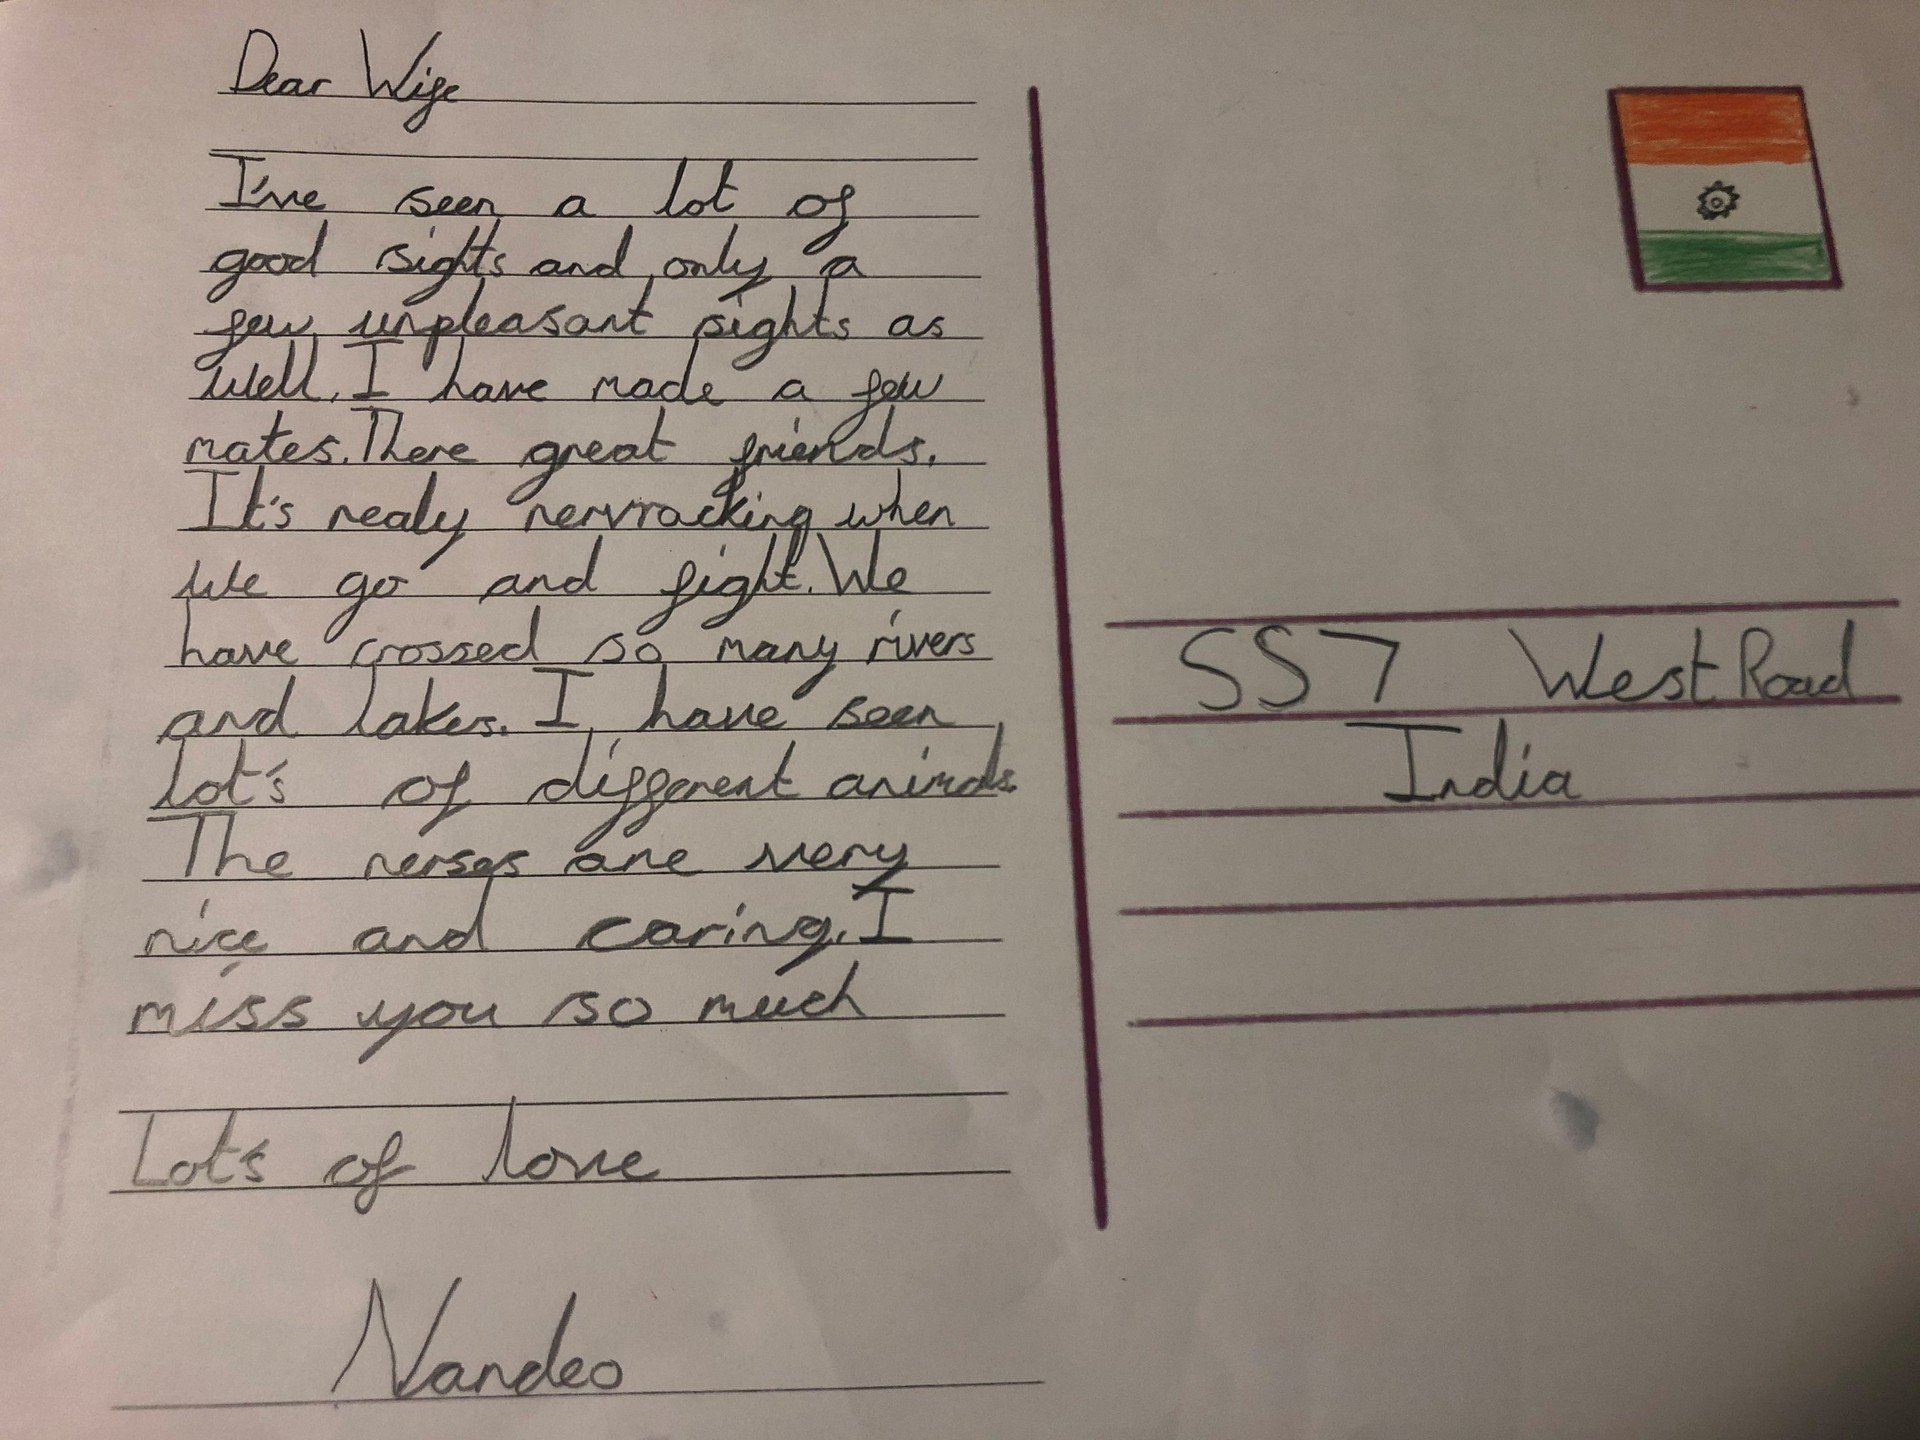 Dear Wife
I've seen a lot of
good sights and only a
few unpleasant sights as
well. I have made a few
mates. There great friends.
It's realy nervracking when
we go and fight. We
have crossed so many rivers
and lakes. I have seen
lot's of different animals.
The nerses are very
nice and caring. I
miss you so much
Lot's of love
Nandeo
SS7 West Road
India